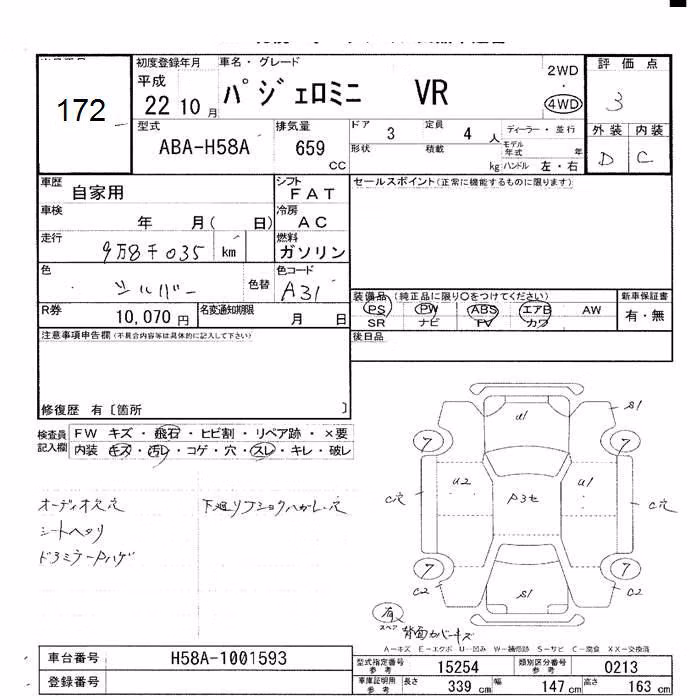 初度登録年月 車名・グレード 2WD 評価点
平成 22 10月 パジェロミニ VR 4WD 3
172
型式 排気量 ドア 3 定員 4人 ディーラー・並行 外装 内装
ABA-H58A 659 CC 形状 積載 kg モデル年式 年 D C
ハンドル 左・右
車歴 自家用 シフト FAT セールスポイント(正常に機能するものに限ります)
車検 年 月( 日) 冷房 AC
走行 9万8千035 km 燃料 ガソリン
色 シルバー 色替 色コード A31
装備品(純正品に限り○をつけてください) 新車保証書
PS PW ABS エアB AW 有・無
SR ナビ TV カワ
R券 10,070円 名変通知期限 月 日
注意事項申告欄(不具合内容等は具体的に記入して下さい) 後日品
修復歴 有〔箇所 〕
検査員記入欄 FW キズ・飛石・ヒビ割・リペア跡・×要
内装 キズ・汚レ・コゲ・穴・スレ・キレ・破レ
オーディオ欠穴 下廻リ
シートヘタリ
S1
U1
7 7
C穴 U2 P3セ U1 C穴
7 7
C2 S1 C2
有
スペア 背面カバーキズ
A-キズ E-エクボ U-凹み W-補修跡 S-サビ C-腐食 XX-交換済
車台番号 H58A-1001593
登録番号
型式指定番号 参考 15254 類別区分番号 参考 0213
車庫証明用 参考 長さ 339 cm 幅 147 cm 高さ 163 cm